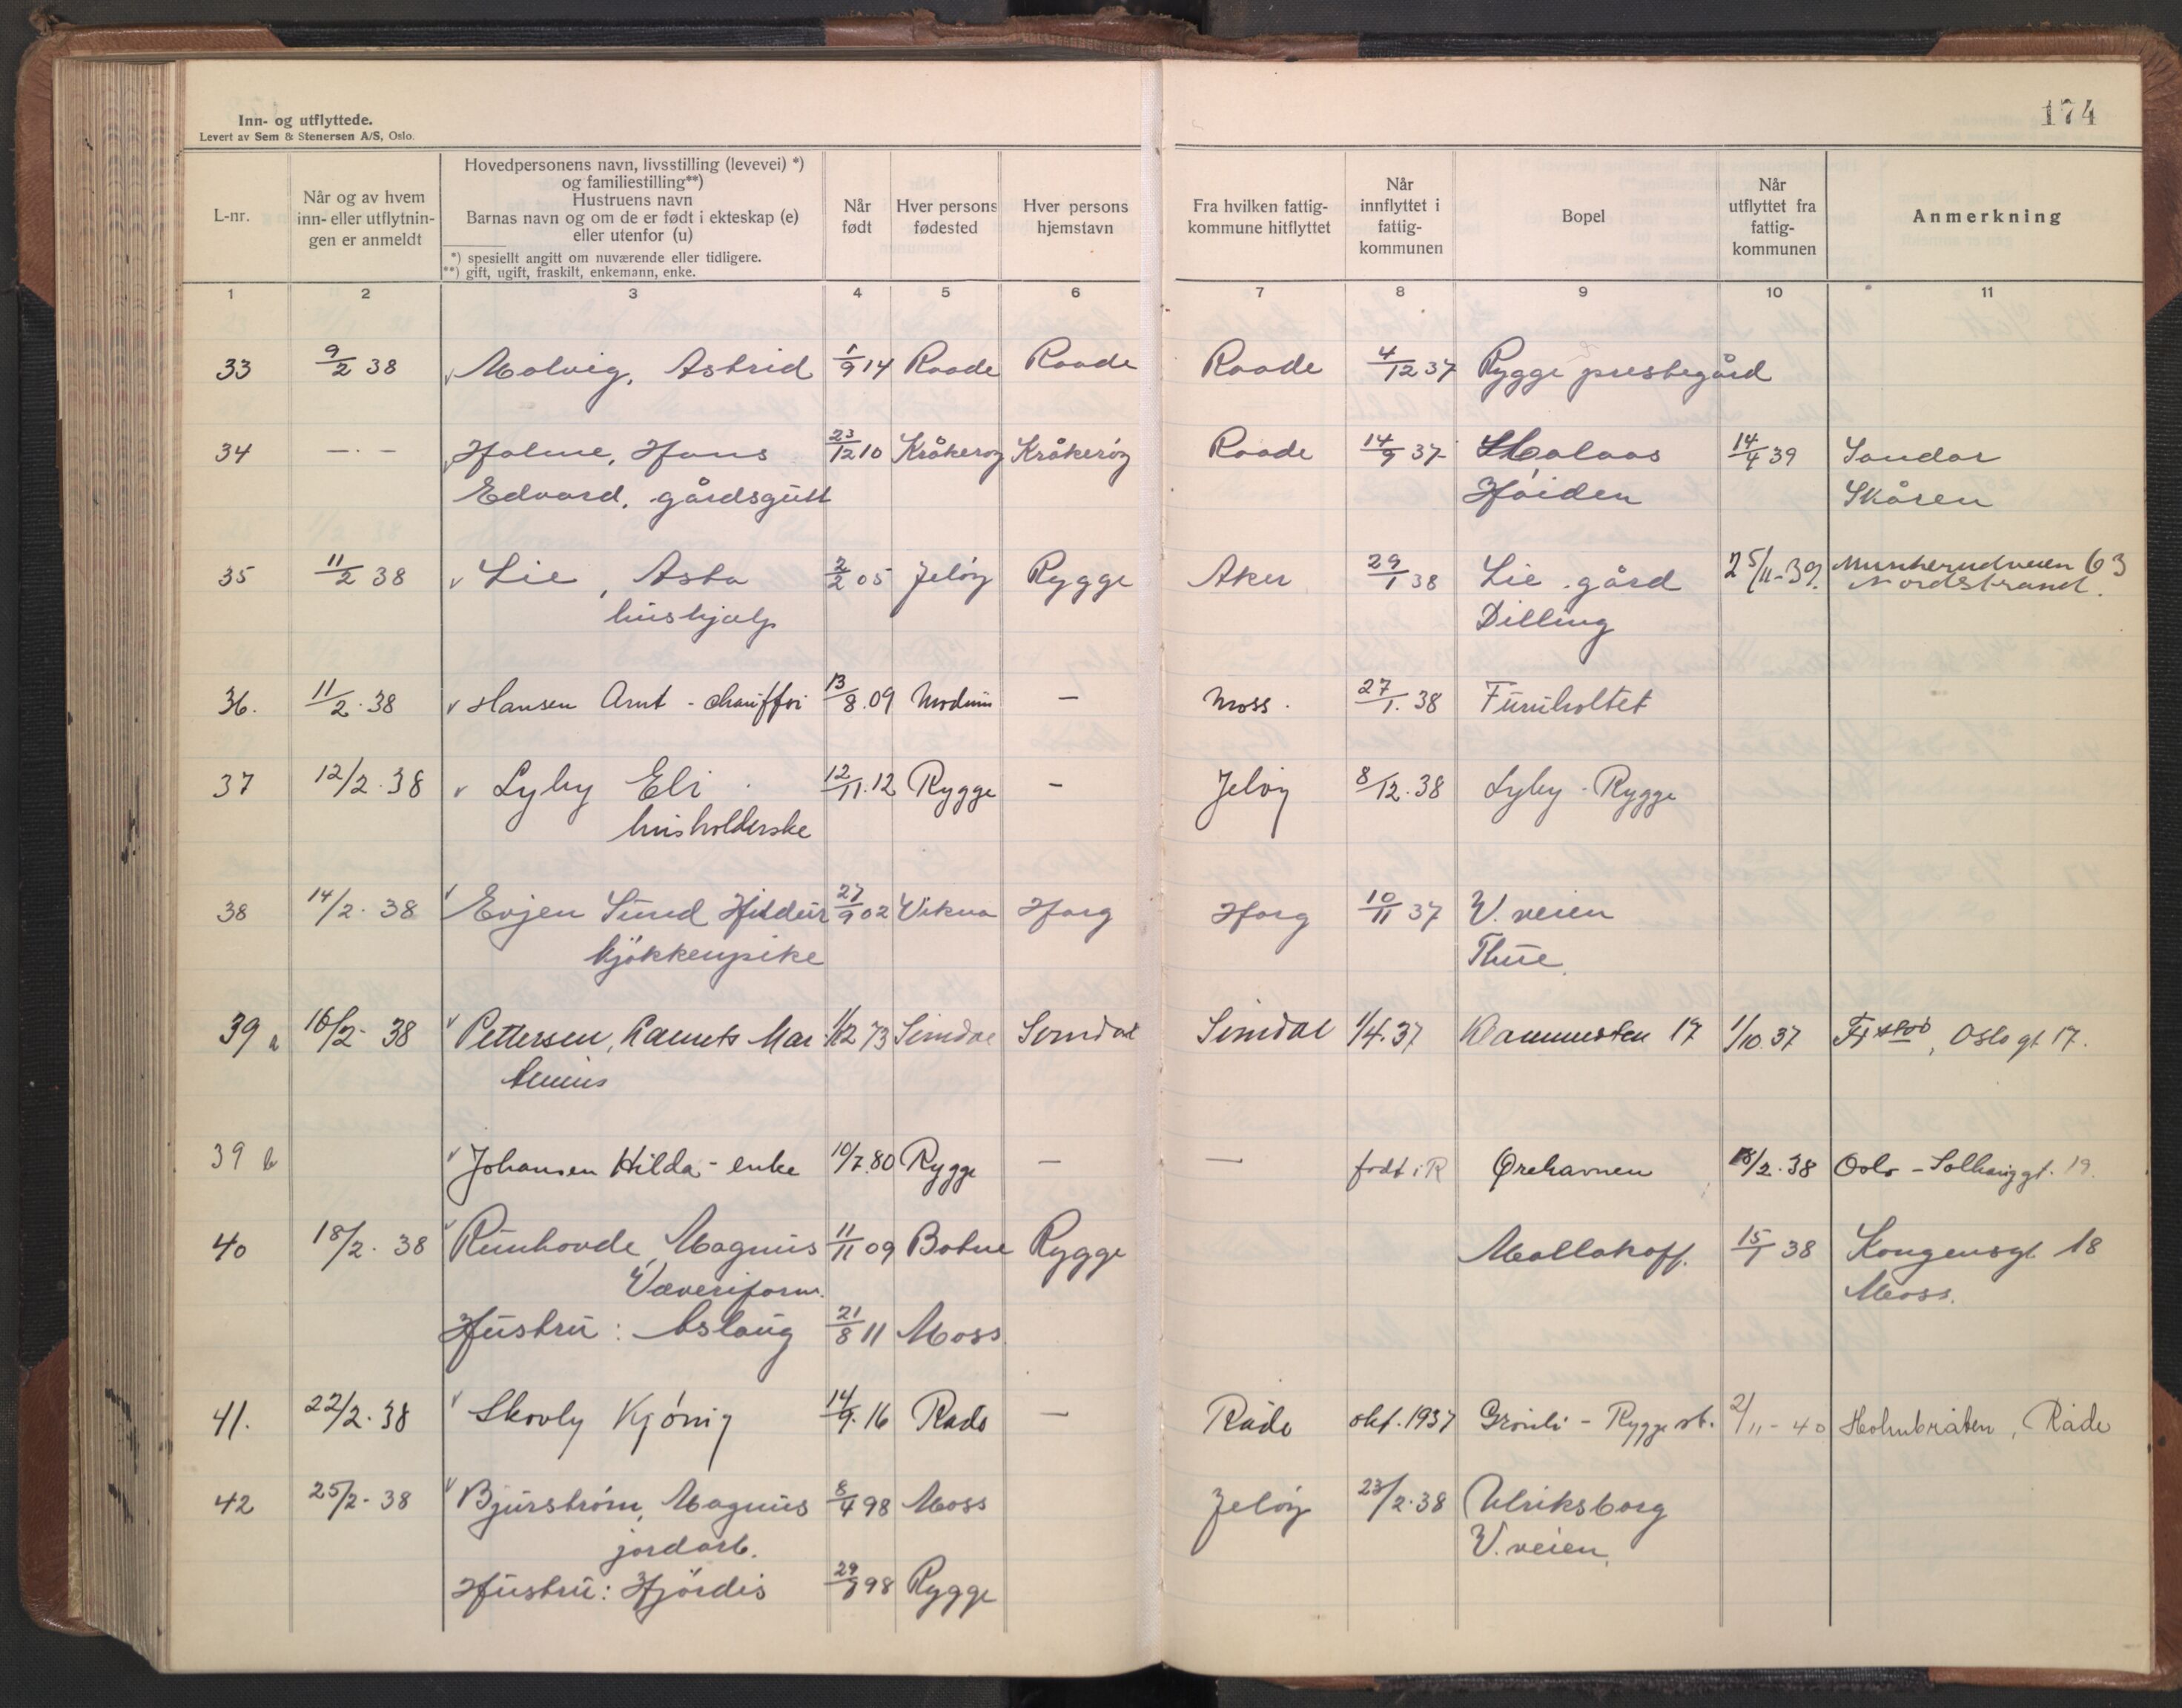 174
Inn- og utflyttede.
Levert av Sem & Stenersen A/S, Oslo.
L-nr.
Når og av hvem
inn- eller utflytnin-
gen er anmeldt
Hovedpersonens navn, livsstilling (levevei) *)
og familiestilling**)
Hustruens navn
Barnas navn og om de er født i ekteskap (e)
eller utenfor (u)
*) spesiellt angitt om nuværende eller tidligere.
**) gift, ugift, fraskilt, enkemann, enke.
Når
født
Hver persons
fødested
Hver persons
hjemstavn
Fra hvilken fattig-
kommune hitflyttet
Når
innflyttet i
fattig-
kommunen
Bopel
Når
utflyttet fra
fattig-
kommunen
Anmerkning
1 2 3 4 5 6 7 8 9 10 11
33 9/2 38 Molvig, Astrid 1/9 14 Raade Raade Raade 4/12 37 Rygge prestegård
34 —.— Holme, Hans 23/12 10 Kråkerøy Kråkerøy Raade 14/9 37 14/4 39 Sandar
Edvard, gårdsgutt Høiden Skåren
35 11/2 38 Lie, Asta 2/2 05 Jeløy Rygge Aker 29/1 38 Lie gård 25/11-39. Munkerudveien 63
Nordstrand.
hushjælp Dilling
36. 11/2.38 Hansen Arnt - chauffør 13/8.09 Modum — Moss. 27/1.38 Furuholtet
37 12/2.38 Lyby Eli 12/11.12 Rygge — Jeløy 8/12.38 Lyby - Rygge
husholderske
38 14/2.38 Evjen Sund Hildur 27/9 02 Vikna Horg Horg 10/11 37 V. veien
kjøkkenpike Thue
39 a 16/2-38 Pettersen, Mar 1/12 73 1/4.37 17 1/10.37 Oslo gt 17.
tinius
39 b Johansen Hilda - enke 10/7.80 Rygge — — født i R Ørehavnen 18/2.38 Oslo - Solhauggt. 19.
40 18/2.38 Runhovde, Magnus 11/11 09 Botne Rygge Mallakoff. 15/1 38 Kongensgt 18
Væveriform. Moss.
Hustru: Aslaug 21/8 11 Moss.
41. 22/2.38 Skovly Kjønig 14/9.16 Råde — Råde okt. 1937 Grønli - Rygge st. 2/11-40 Holmbråten, Råde
42 25/2-38 Bjurstrøm, Magnus 8/4 98 Moss Jeløy 23/2.38 Ulriksborg
jordarb. V. veien.
Hustru: Hjørdis 98 Rygge